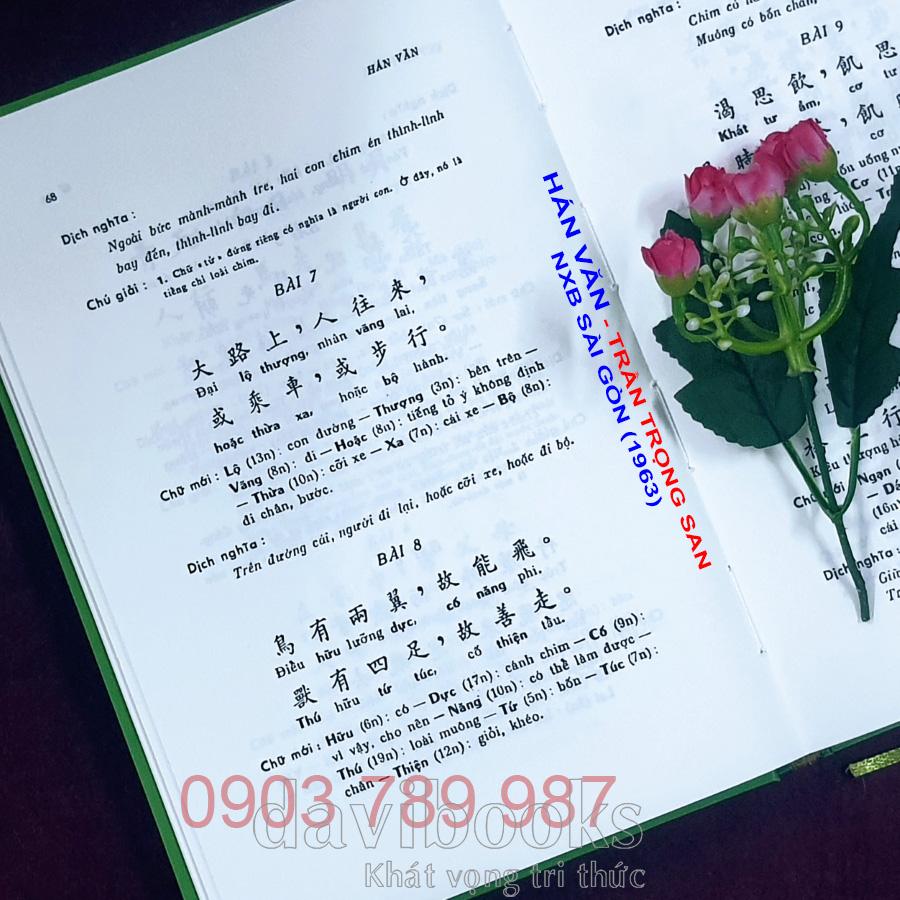 HÁN VĂN
68
Dịch nghĩa :
Ngoài bức mành-mành tre, hai con chim én thình-lình
bay đến, thình-lình bay đi.
Chú giải : 1. Chữ «tử» đứng riêng có nghĩa là người con. Ở đây, nó là
tiếng chỉ loài chim.
BÀI 7
大路上，人往來，
Đại lộ thượng, nhân vãng lai,
或乘車，或步行。
hoặc thừa xa, hoặc bộ hành.
Chữ mới : Lộ (13n) : con đường — Thượng (3n) : bên trên —
Vãng (8n) : đi — Hoặc (8n) : tiếng tỏ ý không định
— Thừa (10n) : cỡi xe — Xa (7n) : cái xe — Bộ (8n) :
đi chân, bước.
Dịch nghĩa :
Trên đường cái, người đi lại, hoặc cỡi xe, hoặc đi bộ.
BÀI 8
鳥有兩翼，故能飛。
Điểu hữu lưỡng dực, cố năng phi.
獸有四足，故善走。
Thú hữu tứ túc, cố thiện tẩu.
Chữ mới : Hữu (6n) : có — Dực (17n) : cánh chim — Cố (9n) :
vì vậy, cho nên — Năng (10n) : có thể làm được —
Thú (19n) : loài muông — Tứ (5n) : bốn — Túc (7n) :
chân — Thiện (12n) : giỏi, khéo.
Dịch nghĩa :
Muông có bốn chân,
BÀI 9
渴思飲，飢思
Khát tư ẩm, cơ tư
Chữ mới : Ngạn
Dịch nghĩa :
HÁN VĂN - TRẦN TRỌNG SAN
NXB SÀI GÒN (1963)
0903 789 987
davibooks
Khát vọng tri thức